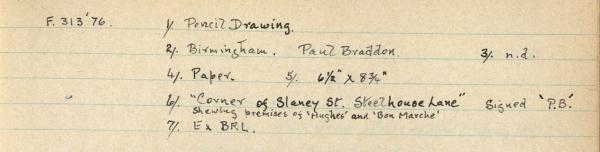 F. 313'76. 1/ Pencil Drawing.
2/. Birmingham. Paul Braddon. 3/. n.d.
4/. Paper. 5/. 6½" x 8¾"
6/. "Corner of Slaney St. Steelhouse Lane" Signed 'P.B.'
Shewing premises of 'Hughes' and 'Bon Marche'
7/. Ex BRL.